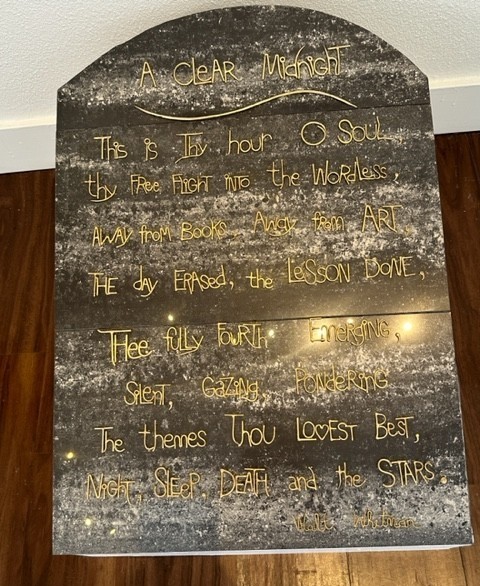 A CLEAR MidnighT
This is Thy hour O Soul,
thy FREE FlighT iNTO the WoRdless,
AWAY from BOOKS, AWAY from ART,
THE day ERASEd, the LeSSON DONE,
THee fully FoURTH EmeRgiNg,
SileNT, GaZiNg, PoNdeRiNg
The themes Thou LO♡EST BesT,
NighT, SLEEP, DEATH and the STARS.
Walt Whitman